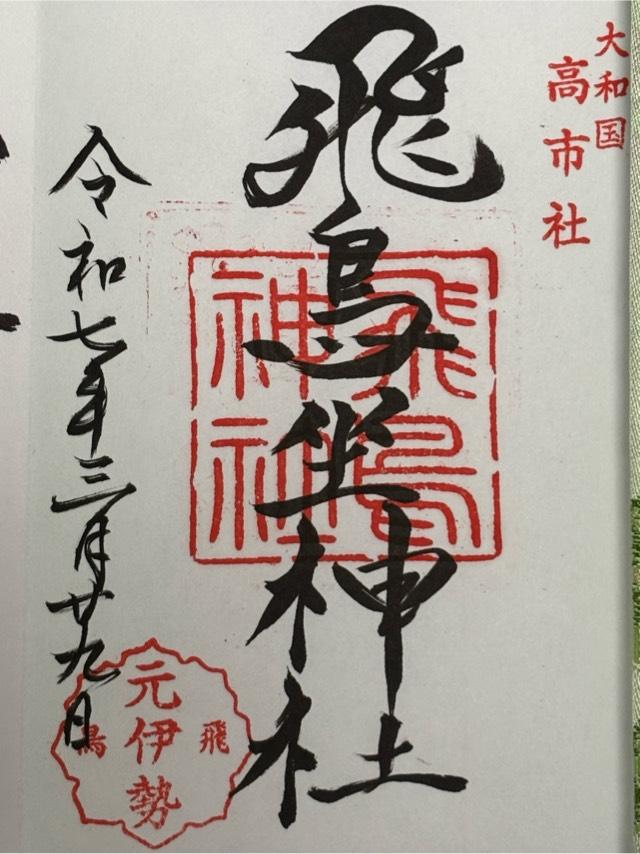 大和国
高市社
飛鳥坐神社
飛鳥
神社
令和七年三月廿九日
飛鳥
元伊勢